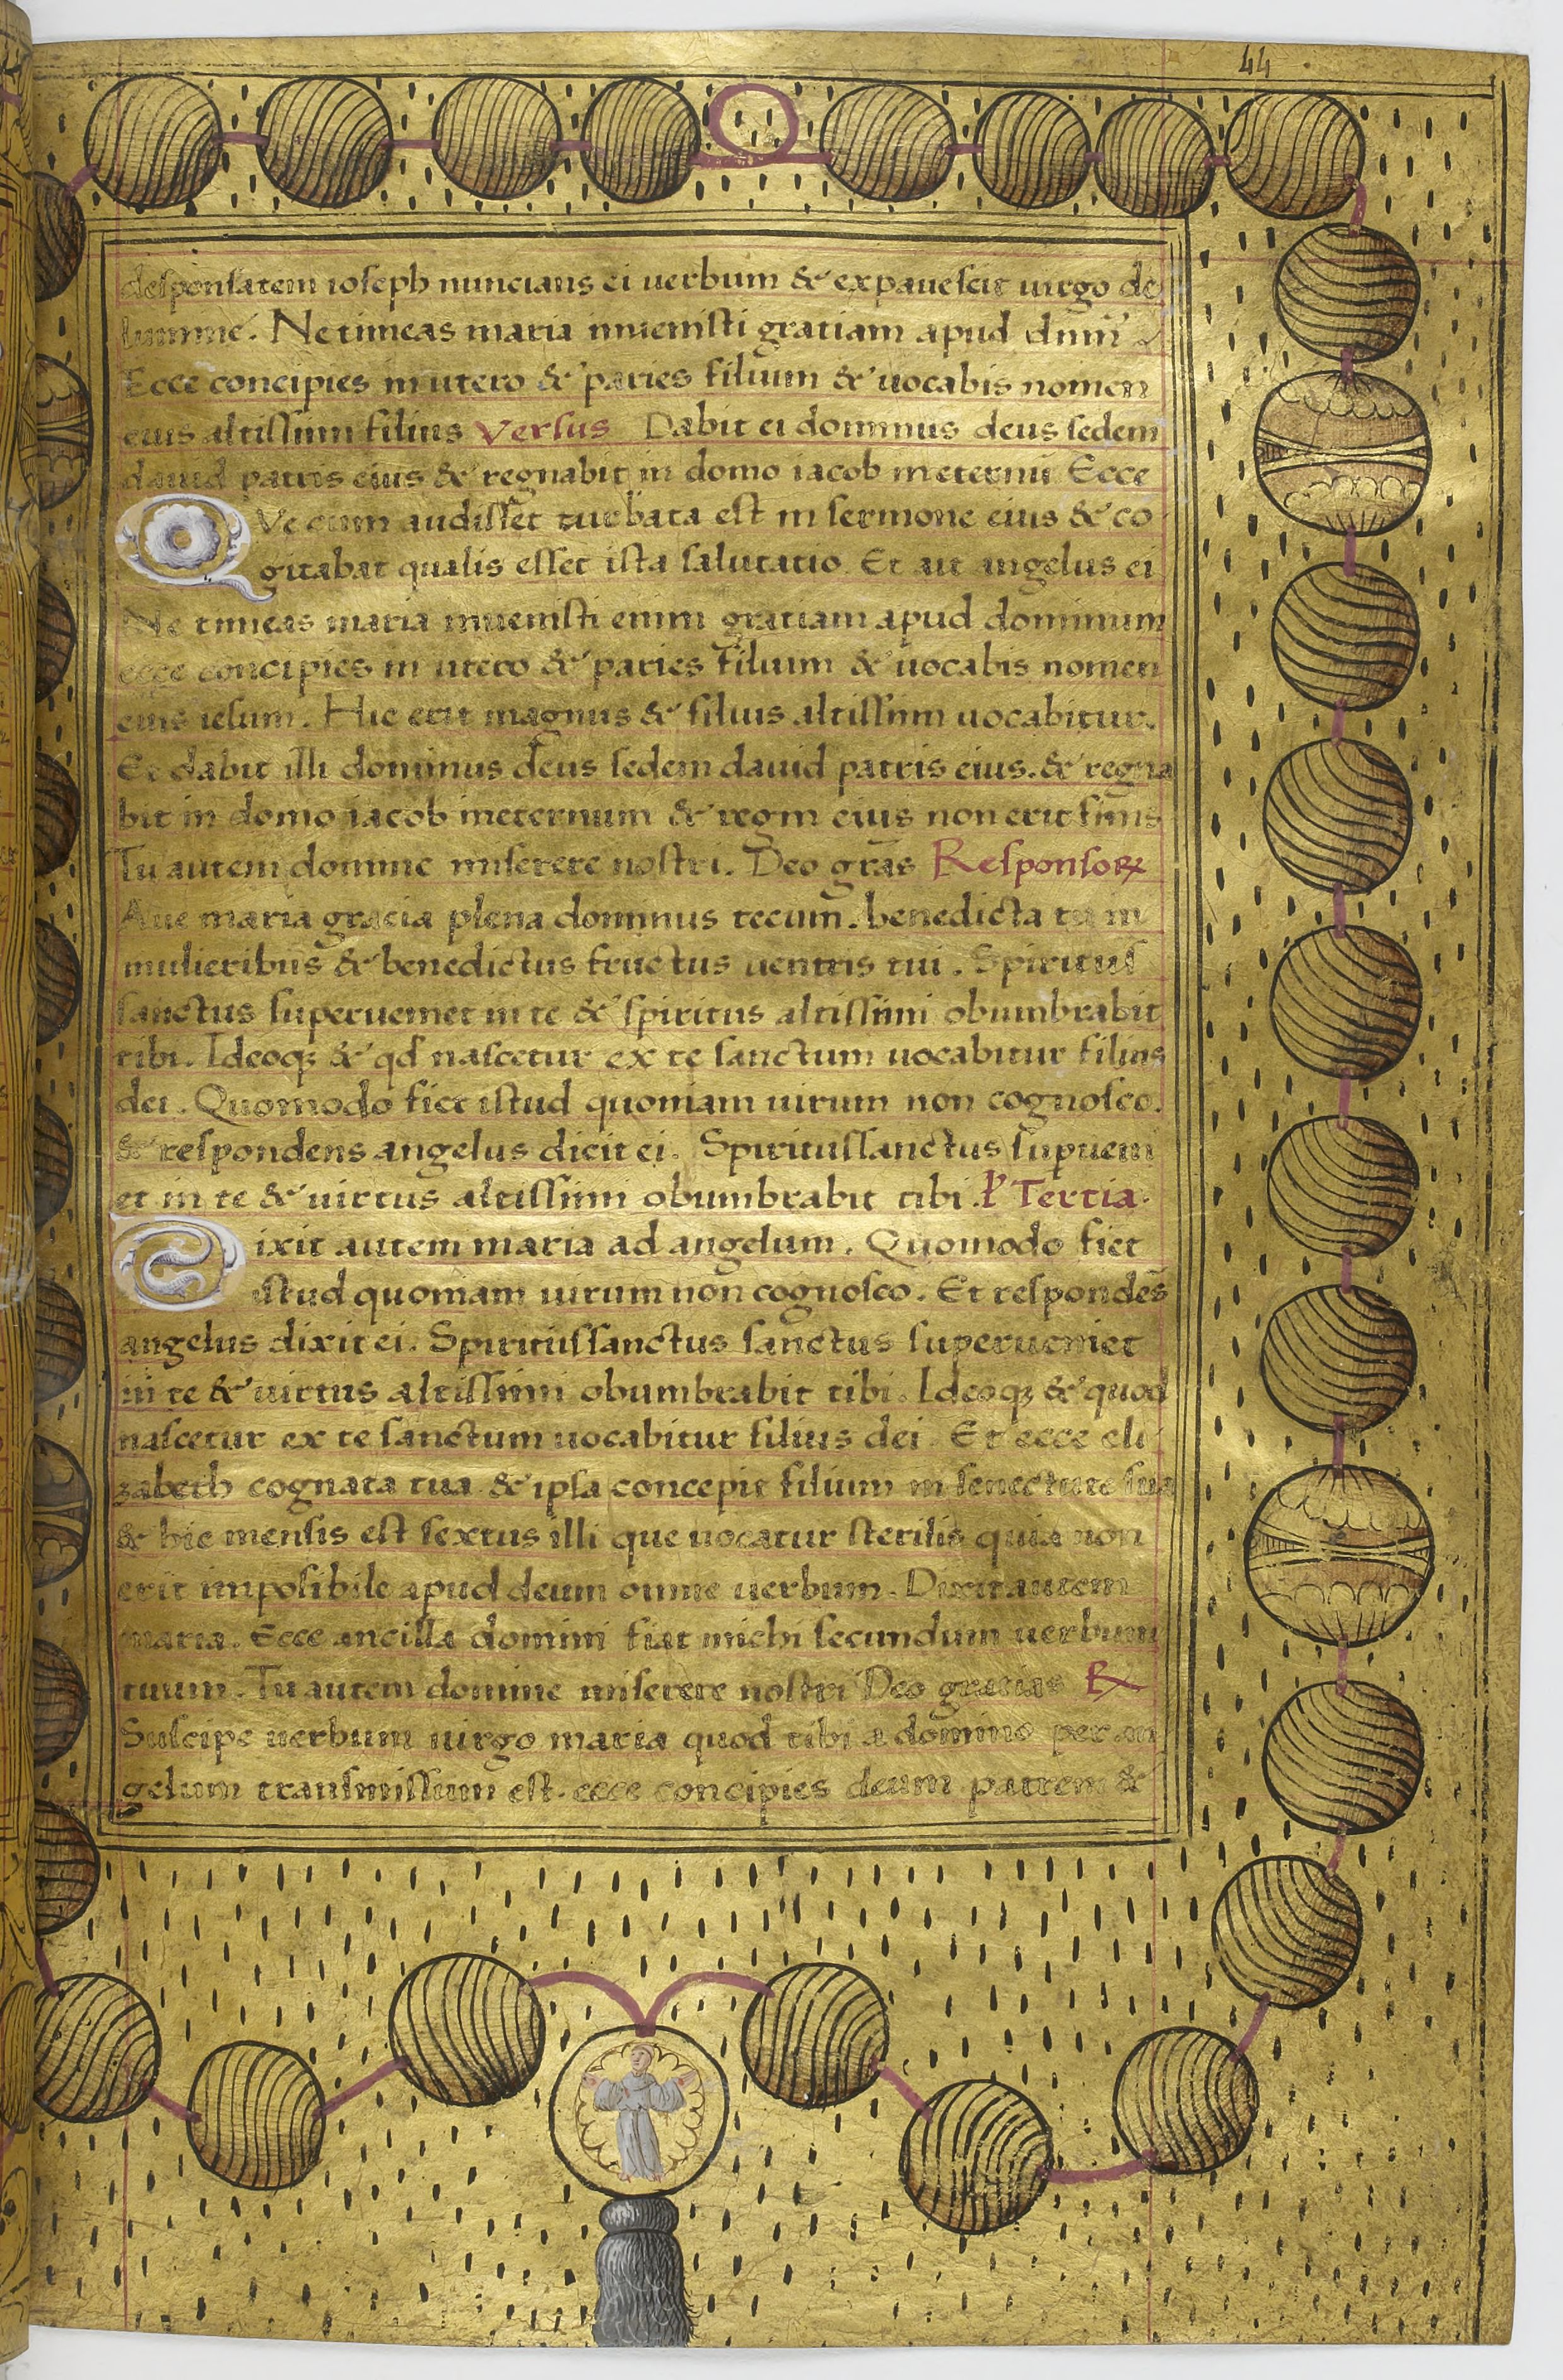 44
desponsatem ioseph nuncians ei uerbum & expauescit uirgo de
lumine. Ne timeas maria inuenisti gratiam apud dnm̄
Ecce concipies in utero & paries filium & uocabis nomen
eius altissimi filius Versus Dabit ei dominus deus sedem
dauid patris eius & regnabit in domo iacob ineternū Ecce
QVe cum audisset turbata est in sermone eius & co
gitabat qualis esset ista salutatio. Et ait angelus ei
Ne timeas maria inuenisti enim gratiam apud dominum
ecce concipies in utero & paries filium & uocabis nomen
eius iesum. Hic erit magnus & filius altissimi uocabitur.
Et dabit illi dominus deus sedem dauid patris eius. & regna
bit in domo iacob ineternum & regni eius non erit finis
Tu autem domine miserere nostri. Deo gr̄as Responsoꝝ
Aue maria gracia plena dominus tecum. benedicta tu in
mulieribus & benedictus fructus uentris tui. Spiritus
sanctus superueniet in te & spiritus altissimi obumbrabit
tibi. Ideoqꝫ & qd nascetur ex te sanctum uocabitur filius
dei. Quomodo fiet istud quoniam uirum non cognosco.
& respondens angelus dicit ei. Spiritussanctus suꝑueni
et in te & uirtus altissimi obumbrabit tibi. ł Tertia.
Dixit autem maria ad angelum. Quomodo fiet
istud quoniam uirum non cognosco. Et respondēs
angelus dixit ei. Spiritussanctus sanctus superueniet
in te & uirtus altissimi obumbrabit tibi. Ideoqꝫ & quod
nascetur ex te sanctum uocabitur filius dei. Et ecce eli
zabeth cognata tua & ipsa concepit filium in senectute sua
& hic mensis est sextus illi que uocatur sterilis quia non
erit imposibile apud deum omne uerbum. Dixit autem
maria. Ecce ancilla domini fiat michi secundum uerbum
tuum. Tu autem domine miserere nostri Deo gratias ℞
Suscipe uerbum uirgo maria quod tibi a domino per an
gelum transmissum est. ecce concipies deum patrem &